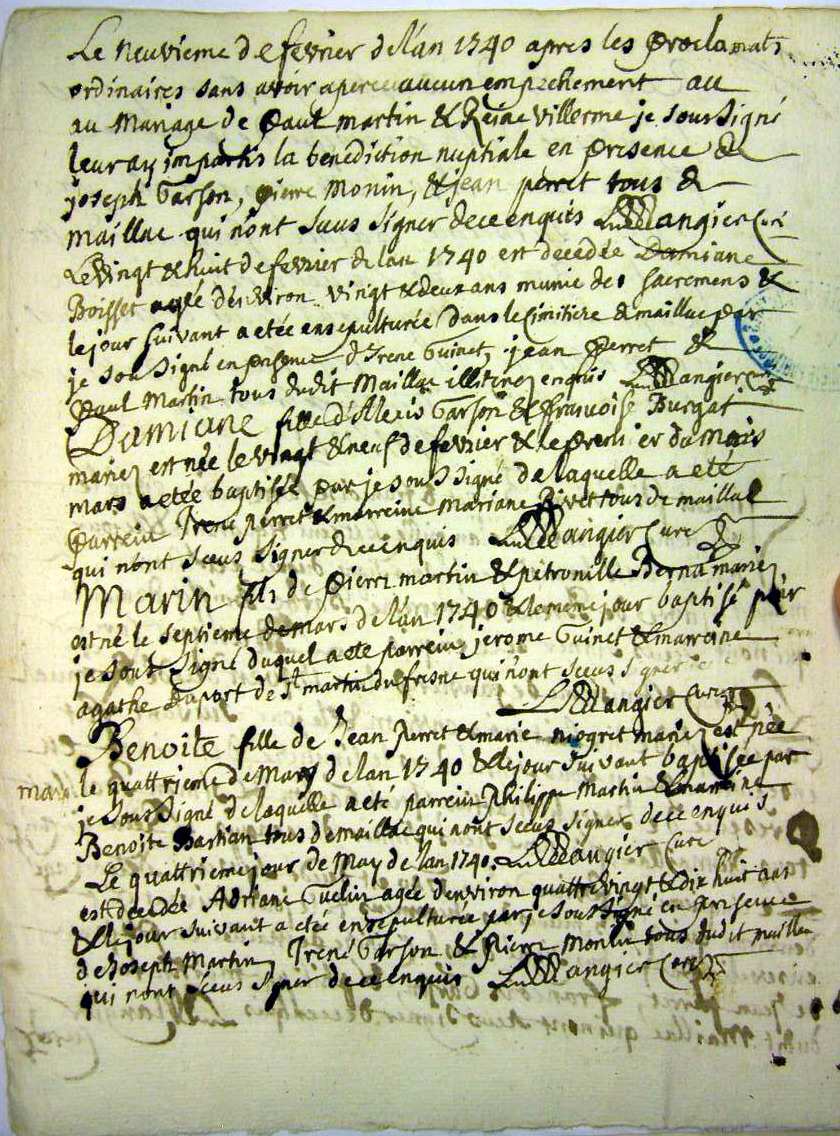 Le neuvieme de fevrier de l'an 1740 apres les proclamats
ordinaires sans avoir aperceu aucun empechement au
au Mariage de paul martin & Reine villerme je soussigné
leur ay impartis la benediction nuptiale en presence de
joseph Garson, pierre monin, & jean perret tous de
maillac qui n'ont sceus signer de ce enquis angier Curé
Le vingt & huit de fevrier de lan 1740 est decedée Damiane
Boisset agée d'environ vingt & deux ans munie des sacremens &
le jour suivant a etée ensepulturée dans le cimitiere de maillac par
je soussigné en presence d'Irene Guinet, jean perret &
paul Martin tous dudit Maillac illiterez enquis angier Curé
Damiane fille d'Alexis Garson & francoise Burgat
mariez est née le vingt & neuf de fevrier & le premier du mois
mars a etée baptisée par je soussigné de laquelle a eté
parrein Irené perret & marreine Mariane Rivet tous de maillac
qui n'ont sceus signer de ce enquis angier Curé
Marin fils de pierre martin & petronille Berna mariez
est né le septieme de mars de l'an 1740 & le meme jour baptisé par
je sous signé duquel a eté parrein jerome Guinet & marreine
agathe Duport de St martin du fresne qui n'ont sceus signer
angier Curé
Benoite fille de Jean perret & marie niogret mariez est née
le quattrieme de May de lan 1740 & le jour suivant baptisée par
je soussigné de laquelle a eté parrein philippe Martin & marreine
Benoite Bastian tous de maillac qui n'ont sceus signer de ce enquis
Le quattrieme jour de May de lan 1740. angier Curé
est decedée Adriane Guelin agée d'environ quattre vingt & dix huit ans
& le jour suivant a etée ensepulturée par je soussigné en presence
de Joseph Martin, Irené Garson & pierre Monin tous dudit maillac
qui n'ont sceus signer de ce enquis angier Curé